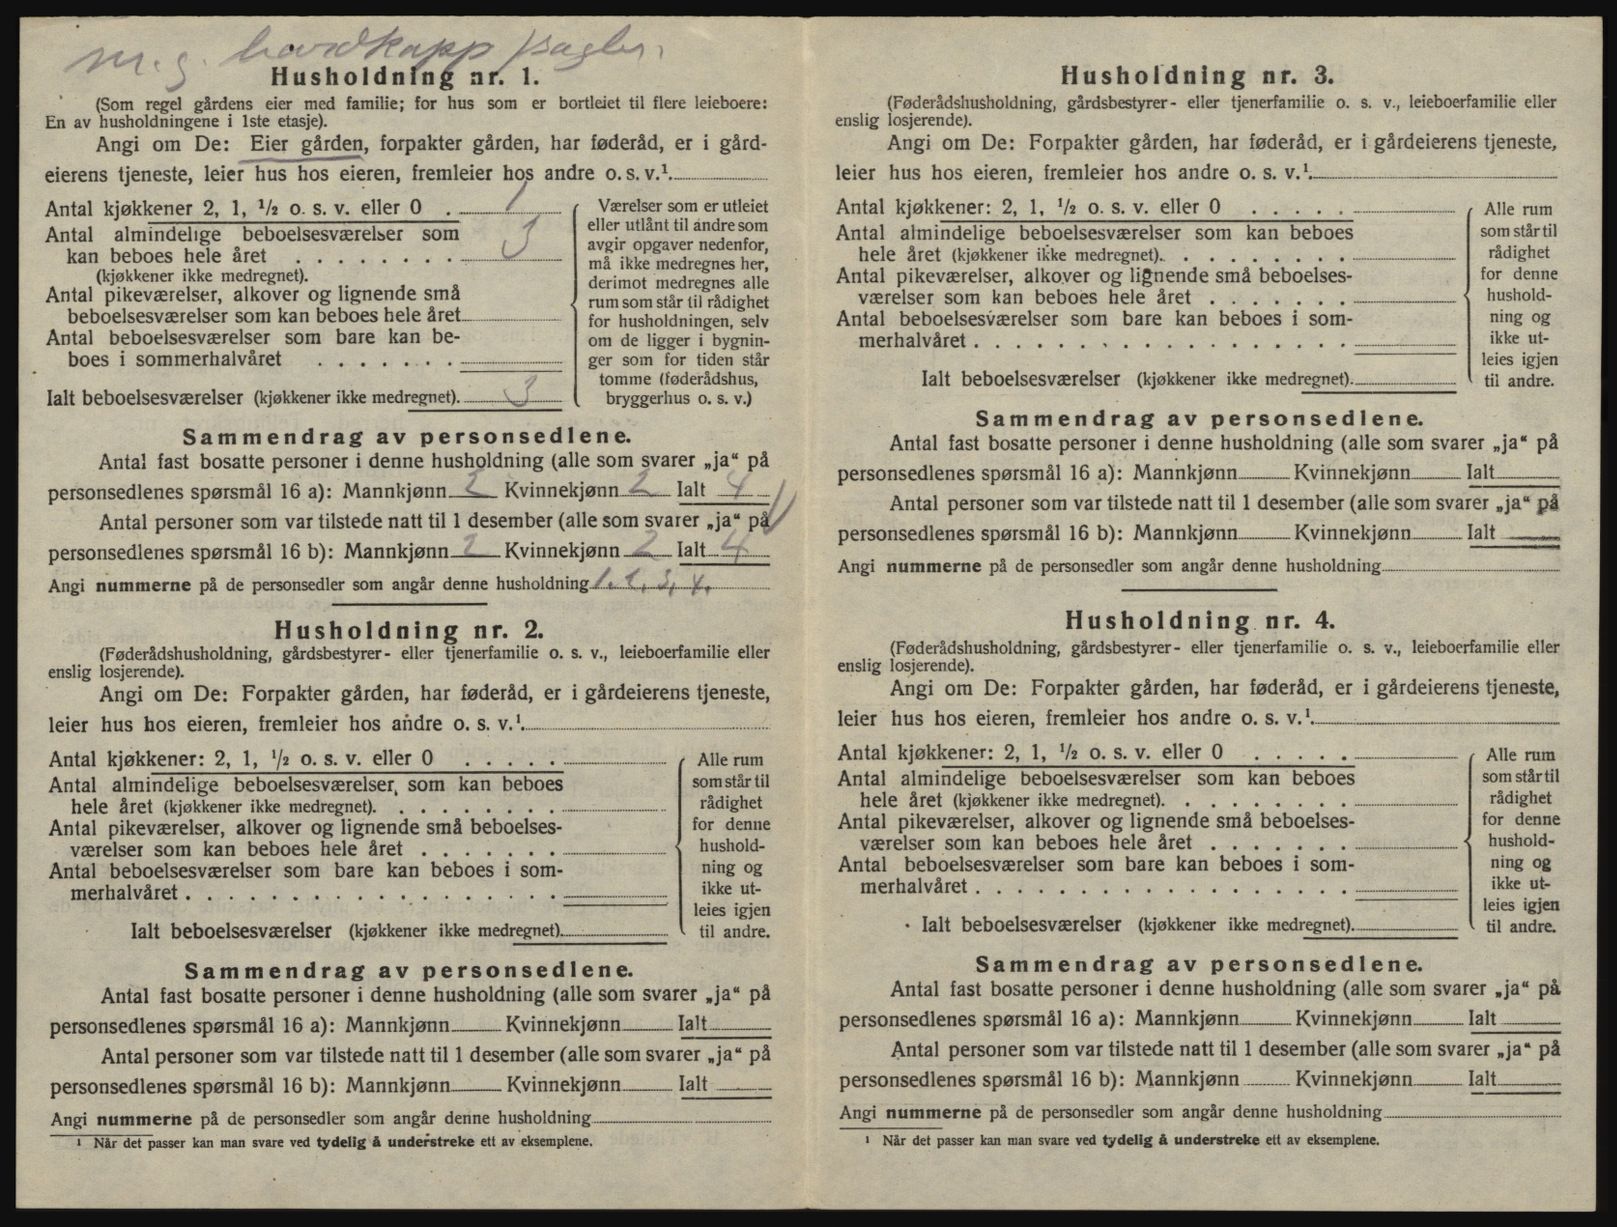 m. g.
Husholdning nr. 1.
(Som regel gårdens eier med familie; for hus som er bortleiet til flere leieboere:
En av husholdningene i 1ste etasje).
Angi om De: Eier gården, forpakter gården, har føderåd, er i gård-
eierens tjeneste, leier hus hos eieren, fremleier hos andre o. s. v.¹
Antal kjøkkener 2, 1, ½ o. s. v. eller 0 . 1
Antal almindelige beboelsesværelser som
kan beboes hele året . . . . . . . . 3
(kjøkkener ikke medregnet).
Antal pikeværelser, alkover og lignende små
beboelsesværelser som kan beboes hele året
Antal beboelsesværelser som bare kan be-
boes i sommerhalvåret . . . . . . .
Ialt beboelsesværelser (kjøkkener ikke medregnet). 3
Værelser som er utleiet
eller utlånt til andre som
avgir opgaver nedenfor,
må ikke medregnes her,
derimot medregnes alle
rum som står til rådighet
for husholdningen, selv
om de ligger i bygnin-
ger som for tiden står
tomme (føderådshus,
bryggerhus o. s. v.)
Sammendrag av personsedlene.
Antal fast bosatte personer i denne husholdning (alle som svarer „ja“ på
personsedlenes spørsmål 16 a): Mannkjønn 2 Kvinnekjønn 2 Ialt 4
Antal personer som var tilstede natt til 1 desember (alle som svarer „ja“ på
personsedlenes spørsmål 16 b): Mannkjønn 2 Kvinnekjønn 2 Ialt 4
Angi nummerne på de personsedler som angår denne husholdning 1. 2, 3, 4.
Husholdning nr. 2.
(Føderådshusholdning, gårdsbestyrer- eller tjenerfamilie o. s. v., leieboerfamilie eller
enslig losjerende).
Angi om De: Forpakter gården, har føderåd, er i gårdeierens tjeneste,
leier hus hos eieren, fremleier hos andre o. s. v.¹
Antal kjøkkener: 2, 1, ½ o. s. v. eller 0 . . . . .
Antal almindelige beboelsesværelser som kan beboes
hele året (kjøkkener ikke medregnet). . . . . . . . .
Antal pikeværelser, alkover og lignende små beboelses-
værelser som kan beboes hele året . . . . . . .
Antal beboelsesværelser som bare kan beboes i som-
merhalvåret . . . . . . . . . . . . . . . . . .
Ialt beboelsesværelser (kjøkkener ikke medregnet).
Alle rum
som står til
rådighet
for denne
hushold-
ning og
ikke ut-
leies igjen
til andre.
Sammendrag av personsedlene.
Antal fast bosatte personer i denne husholdning (alle som svarer „ja“ på
personsedlenes spørsmål 16 a): Mannkjønn Kvinnekjønn Ialt
Antal personer som var tilstede natt til 1 desember (alle som svarer „ja“ på
personsedlenes spørsmål 16 b): Mannkjønn Kvinnekjønn Ialt
Angi nummerne på de personsedler som angår denne husholdning
¹ Når det passer kan man svare ved tydelig å understreke ett av eksemplene.
Husholdning nr. 3.
(Føderådshusholdning, gårdsbestyrer- eller tjenerfamilie o. s. v., leieboerfamilie eller
enslig losjerende).
Angi om De: Forpakter gården, har føderåd, er i gårdeierens tjeneste,
leier hus hos eieren, fremleier hos andre o. s. v.¹
Antal kjøkkener: 2, 1, ½ o. s. v. eller 0 . . . . .
Antal almindelige beboelsesværelser som kan beboes
hele året (kjøkkener ikke medregnet). . . . . . . . .
Antal pikeværelser, alkover og lignende små beboelses-
værelser som kan beboes hele året . . . . . . .
Antal beboelsesværelser som bare kan beboes i som-
merhalvåret . . . . . . . . . . . . . . . . . .
Ialt beboelsesværelser (kjøkkener ikke medregnet).
Alle rum
som står til
rådighet
for denne
hushold-
ning og
ikke ut-
leies igjen
til andre.
Sammendrag av personsedlene.
Antal fast bosatte personer i denne husholdning (alle som svarer „ja“ på
personsedlenes spørsmål 16 a): Mannkjønn Kvinnekjønn Ialt
Antal personer som var tilstede natt til 1 desember (alle som svarer „ja“ på
personsedlenes spørsmål 16 b): Mannkjønn Kvinnekjønn Ialt
Angi nummerne på de personsedler som angår denne husholdning
Husholdning nr. 4.
(Føderådshusholdning, gårdsbestyrer- eller tjenerfamilie o. s. v., leieboerfamilie eller
enslig losjerende).
Angi om De: Forpakter gården, har føderåd, er i gårdeierens tjeneste,
leier hus hos eieren, fremleier hos andre o. s. v.¹
Antal kjøkkener: 2, 1, ½ o. s. v. eller 0 . . . . .
Antal almindelige beboelsesværelser som kan beboes
hele året (kjøkkener ikke medregnet). . . . . . . . .
Antal pikeværelser, alkover og lignende små beboelses-
værelser som kan beboes hele året . . . . . . .
Antal beboelsesværelser som bare kan beboes i som-
merhalvåret . . . . . . . . . . . . . . . . . .
Ialt beboelsesværelser (kjøkkener ikke medregnet).
Alle rum
som står til
rådighet
for denne
hushold-
ning og
ikke ut-
leies igjen
til andre.
Sammendrag av personsedlene.
Antal fast bosatte personer i denne husholdning (alle som svarer „ja“ på
personsedlenes spørsmål 16 a): Mannkjønn Kvinnekjønn Ialt
Antal personer som var tilstede natt til 1 desember (alle som svarer „ja“ på
personsedlenes spørsmål 16 b): Mannkjønn Kvinnekjønn Ialt
Angi nummerne på de personsedler som angår denne husholdning
¹ Når det passer kan man svare ved tydelig å understreke ett av eksemplene.